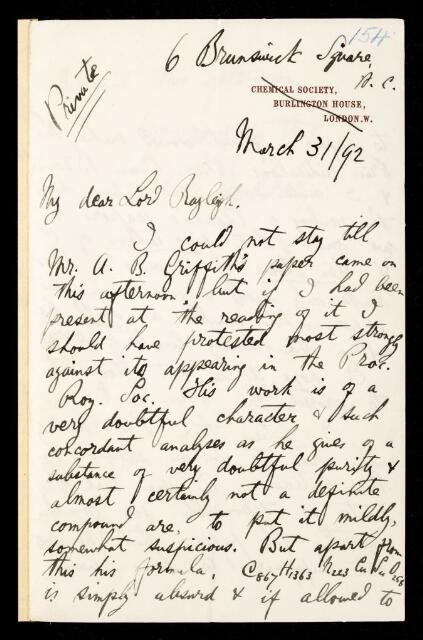 154
6 Brunswick Square,
W. C.
Private
CHEMICAL SOCIETY,
BURLINGTON HOUSE,
LONDON.W.
March 31/92
My dear Lord Rayleigh,
I could not stay till
Mr. A. B. Griffith's paper came on
this afternoon but if I had been
present at the reading of it I
should have protested most strongly
against its appearing in the Proc.
Roy. Soc. His work is of a
very doubtful character & such
concordant analyses as he gives of a
substance of very doubtful purity &
almost certainly not a definite
compound are, to put it mildly,
somewhat suspicious. But apart from
this his formula, C867 H1363 N223 Cu S4 O258
is simply absurd & if allowed to